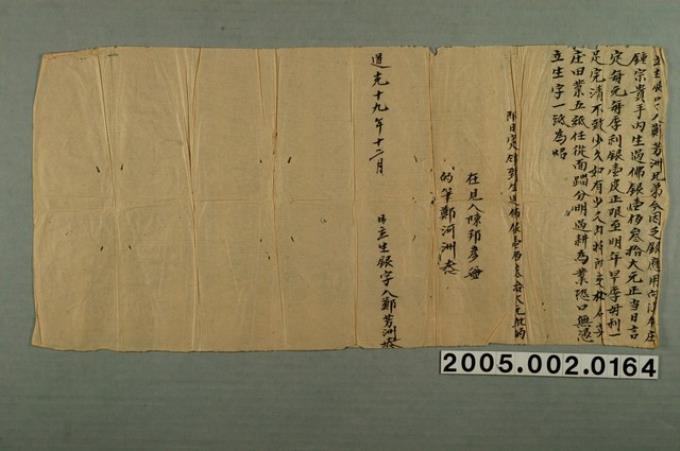 立生銀口字人鄭芳洲兄弟今因乏銀應用向得本庄
鍾宗貴手內生過佛銀壹佰叁拾大元正當日言
定每元每季利銀壹度正限至明年早季母利一
足完清不敢少欠如有少欠
庄田業五紙任從面踏分明過耕為業恐口無憑
立生字一紙為炤
即日實領到生過佛銀壹佰叁拾大元批的
在見人陳邦彥
的筆鄭河洲
道光十九年十二月
日立生銀字人鄭芳洲
2005.002.0164